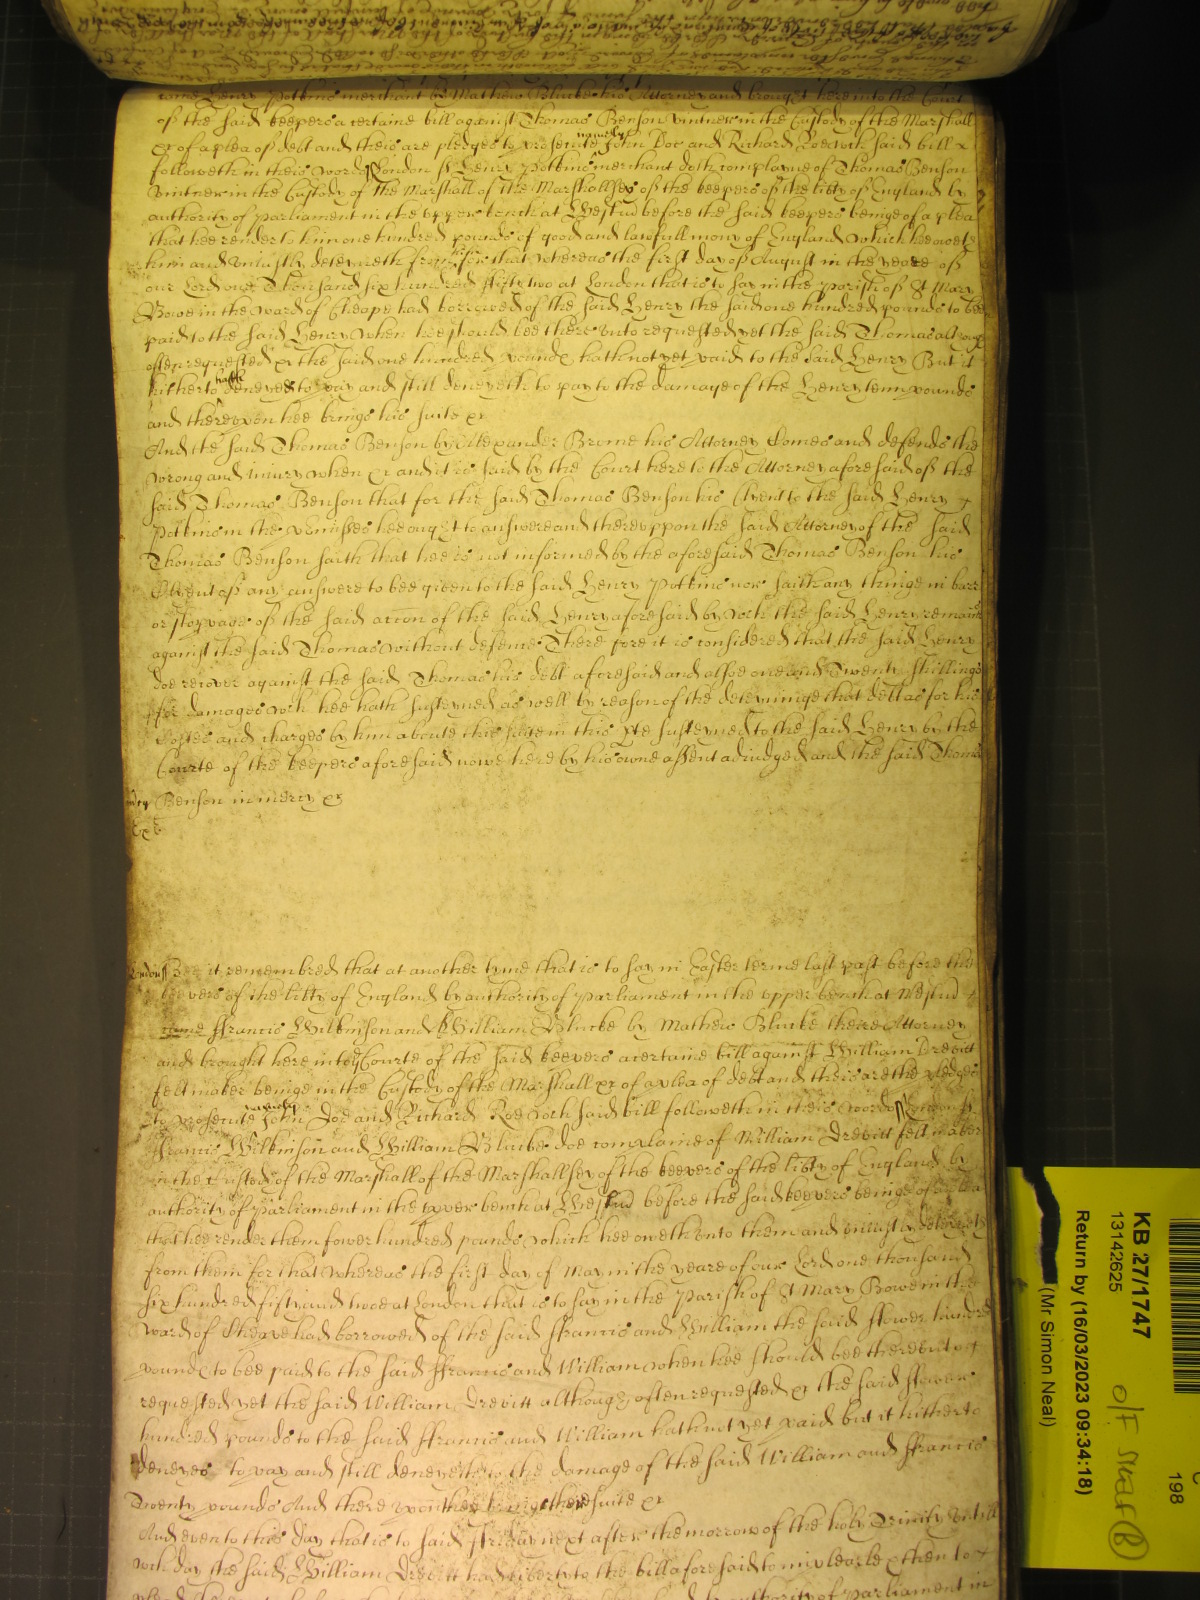 came Henry Potkins merchant by Mathew Blucke his Attorney and brought here into the Court
of the said keepers a certaine bill against Thomas Benson vintner in the Custody of the Marshall
&c of a plea of debt and theis are pledges to prosecute namely John Doe and Richard Roe wch said bill
followeth in theis words London ss Henry Potkins merchant doth complayne of Thomas Benson
vintner in the Custody of the Marshall of the Marshallsey of the keepers of the lib'ty of England by
authority of Parliament in the upper bench at Westm' before the said keepers beinge of a plea
that hee render to him one hundred pounds of good and lawfull mony of England which hee oweth
him and uniustly deteyneth for that whereas the first day of August in the yeare of
our Lord one Thousand six hundred fifty two at London that is to say in the parish of St Mary
Bowe in the ward of Cheape had borrowed of the said Henry the said one hundred pounds to bee
paid to the said Henry when hee should bee there unto requested yet the said Thomas although
often requested &c the said one hundred pounds hath not yet paid to the said Henry But it
hitherto hath denyed to pay and still denyeth to pay to the damage of the Henry tenn pounds
and thereupon hee brings his suite &c
And the said Thomas Benson by Alexander Brome his Attorney Comes and defends the
wrong and iniury when &c and it is said by the Court here to the Attorney aforesaid of the
said Thomas Benson that for the said Thomas Benson his Clyent to the said Henry
Potkins in the premisses hee ought to answere and thereuppon the said Attorney of the said
Thomas Benson saith that hee is not informed by the aforesaid Thomas Benson his
Clyent of any answere to bee given to the said Henry Potkins nor saith any thinge in barr
or stoppage of the said accon of the said Henry aforesaid by wch the said Henry remaines
against the said Thomas without defense Therefore it is considered that the said Henry
doe recover against the said Thomas his debt aforesaid and alsoe one and Twenty shillings
for damages wch hee hath susteyned as well by reason of the deteyninge that debt as for his
Costes and charges by him aboute his suite in this p'te susteyned to the said Henry by the
Courte of the keepers aforesaid nowe here by his owne assent adiudged and the said Thomas
mcy Benson in mercy &c
London ss Bee it remembred that at another tyme that is to say in Easter terme last past before the
keepers of the lib'ty of England by authority of Parliament in the upper bench at Westm'
came Francis Wilkinson and William Blucke by Mathew Blucke theire Attorney
and brought here into ye Courte of the said keepers a certaine bill against William Drevitt
feltmaker beinge in the Custody of the Marshall &c of a plea of debt and theis are the pledges
to prosecute namely John Doe and Richard Roe wch said bill followeth in theis words London ss
Francis Wilkinson and William Blucke doe complaine of William Drevitt feltmaker
in the Custody of the Marshall of the Marshallsey of the keepers of the lib'ty of England by
authority of Parliament in the upper bench at Westm' before the said keepers beinge of a plea
that hee render them fower hundred pounds which hee oweth unto them and uniustly deteyneth
from them for that whereas the first day of May in the yeare of our Lord one thousand
six hundred fifty and twoe at London that is to say in the Parish of St Mary Bowe in the
ward of Cheape had borrowed of the said Francis and William the said fower hundred
pounds to bee paid to the said Francis and William when hee should bee thereunto
requested yet the said William Drevitt although often requested &c the said fower
hundred pounds to the said Francis and William hath not yet paid but it hitherto
denyes to pay and still denyeth to the damage of the said William and Francis
Twenty pounds And there upon they bring there suite &c
And even to this day that is to said Fryday next after the morrow of the holy Trinity untill
wch day the said William Drevitt had liberty to the bill aforesaid to imparle & then to
authority of Parliament in
KB 27/1747
13142625
Return by (16/03/2023 09:34:18)
(Mr Simon Neal)
198